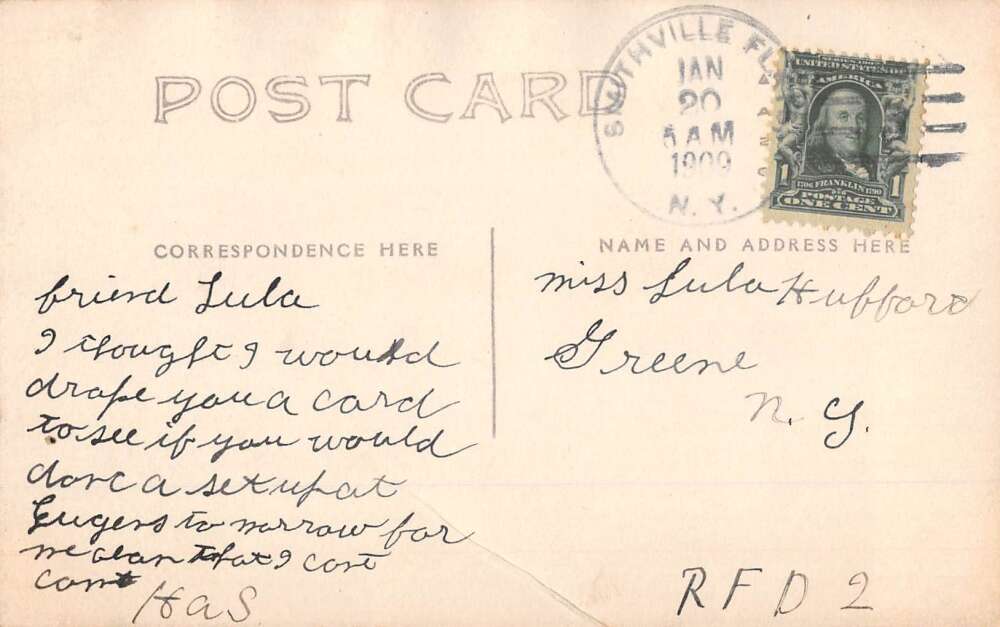 POST CARD
SMITHVILLE FLATS
JAN
20
5 AM
1909
N. Y.
SERIES 1902
UNITED STATES OF
AMERICA
1706 FRANKLIN 1790
1 1
POSTAGE
ONE CENT
CORRESPONDENCE HERE
friend Lula
I thought I would
drope you a card
to see if you would
dance a set up at
Eugens to morrow for
me that I cant
HaS
NAME AND ADDRESS HERE
miss Lula Hubbard
Greene
N. Y.
RFD 2